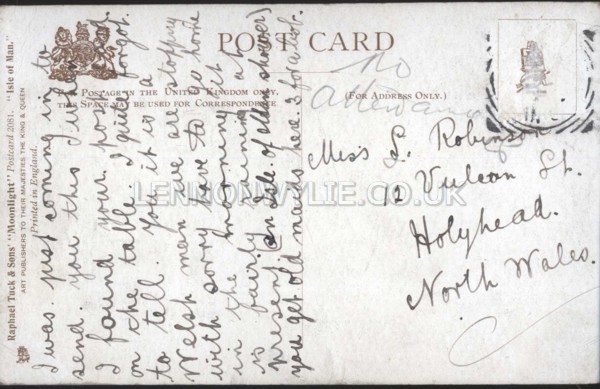 POST CARD
FOR POSTAGE IN THE UNITED KINGDOM ONLY,
THIS SPACE MAY BE USED FOR CORRESPONDENCE
(FOR ADDRESS ONLY.)
Raphael Tuck & Sons' "Moonlight" Postcard 2081. "Isle of Man."
ART PUBLISHERS TO THEIR MAJESTIES THE KING & QUEEN
Printed in England.
I was just coming in to
send you this I'll
I found your postcard
on the table. I quite forgot
to tell you it is a
Welsh man we are stopping
with sorry have to go home
in the morning it
is fairly raining at
present (an Isle of Man shower)
you get old maids here 3 for a bob.
No
Miss L. Robinson
12 Vulcan St.
Holyhead.
North Wales.
LENNONWYLIE.CO.UK